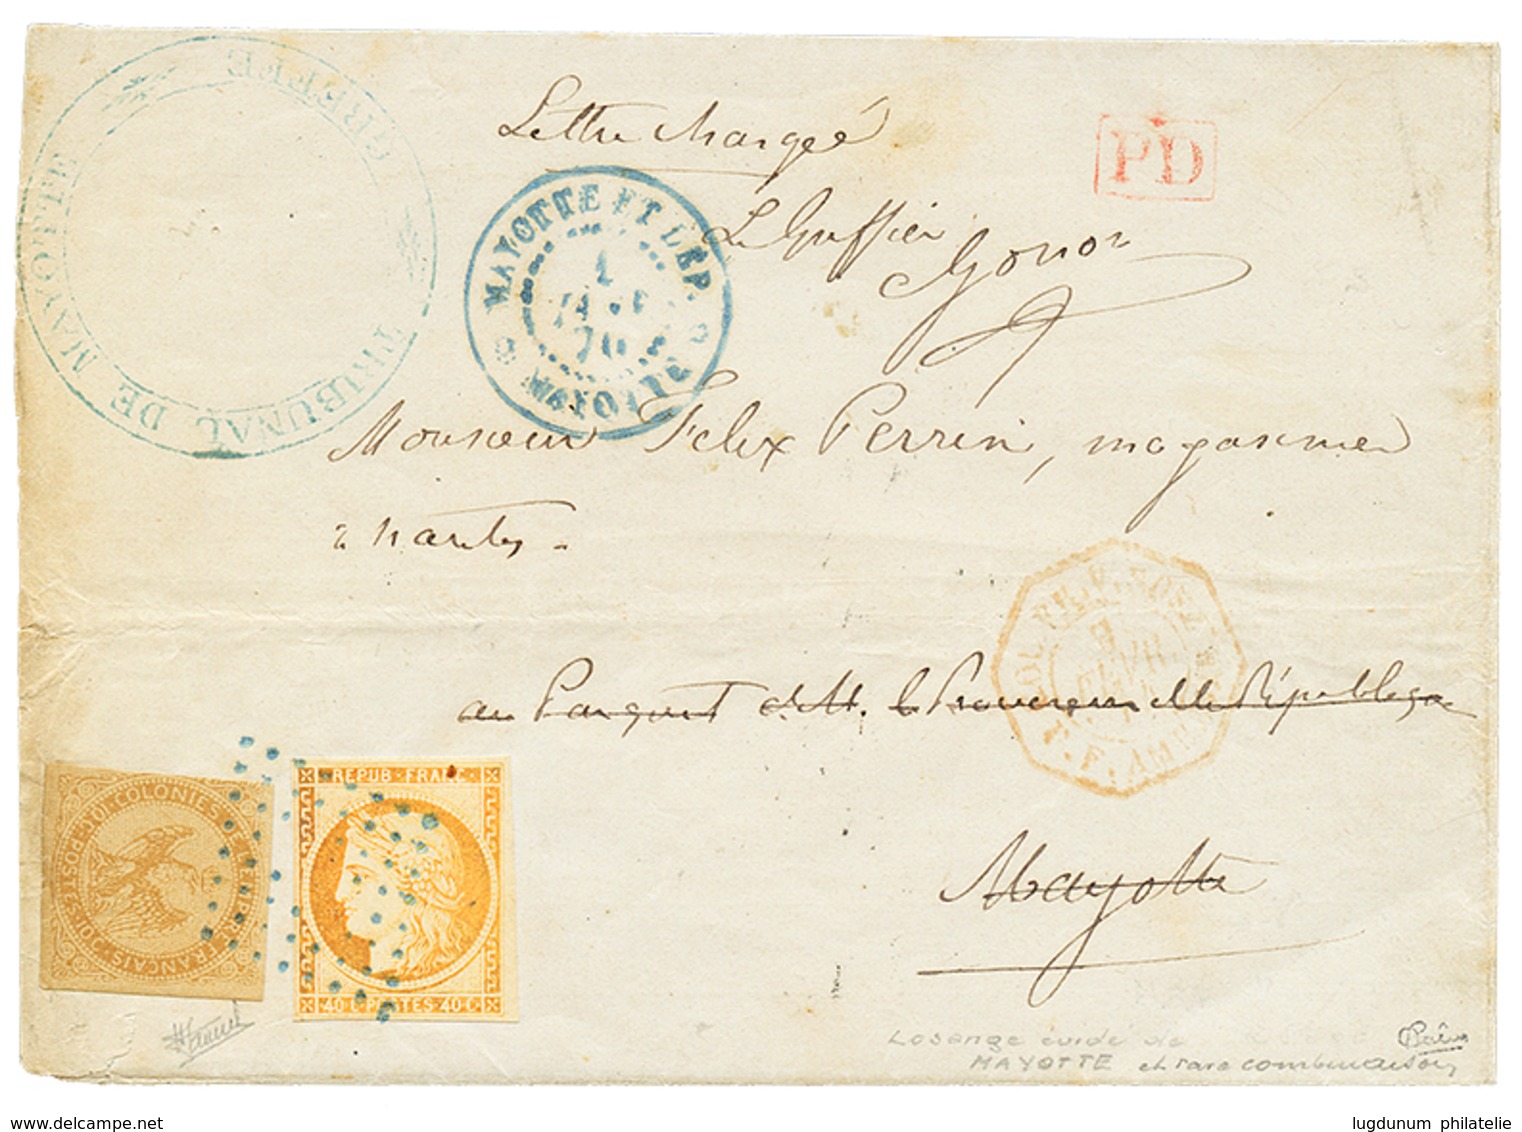 TRIBUNAL DE MAYOTTE
GREFFE
Lettre chargée
PD
MAYOTTE ET DÉP.
1
70
MAYOTTE
Le Greffier
Monsieur Felix Perrin, magasinier
à Nantes.
COL. FR. V. SUEZ
au Parquet de M. le Procureur de la République
Mayotte
COLONIES DE L'EMPIRE FRANÇAIS · 10c · POSTES · 10c
REPUB · FRANC ·
40 C · POSTES · 40 C ·
Losange évidé de
MAYOTTE et rare combinaison
lugdunum philatelie